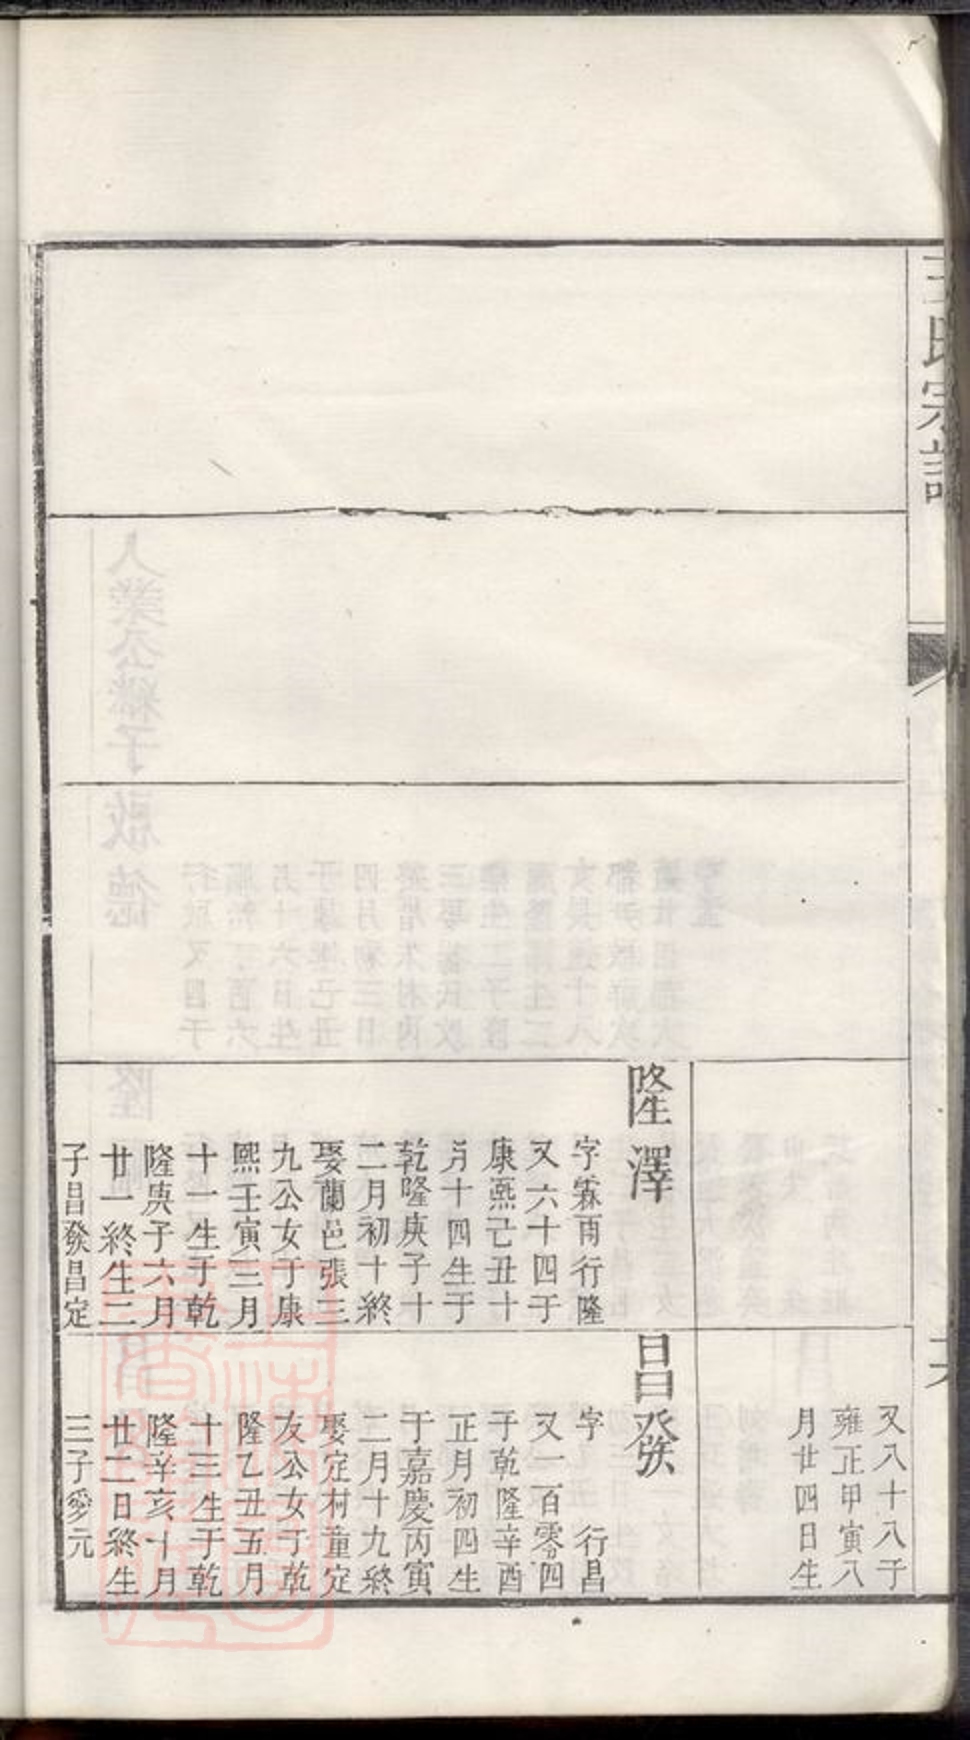 王氏宗譜
隆澤
字霖雨行隆
又六十四于
康熙己丑十
月十四生于
乾隆庚子十
二月初十終
娶蘭邑張三
九公女于康
熙壬寅三月
十一生于乾
隆庚子六月
廿一終生二
子昌發昌定
又八十八于
雍正甲寅八
月廿四日生
昌發
字　行昌
又一百零四
于乾隆辛酉
正月初四生
于嘉慶丙寅
二月十九終
娶定村童定
友公女于乾
隆乙丑五月
十三生于乾
隆辛亥十月
廿二日終生
三子愛元